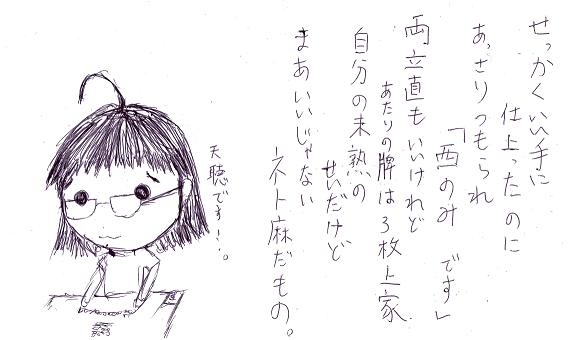 せっかくいい手に
仕上ったのに
あっさりつもられ
「西のみ です」
両立直もいいけれど
あたりの牌は3枚上家
自分の未熟の
せいだけど
まあいいじゃない
ネト麻だもの。
天聴です!。